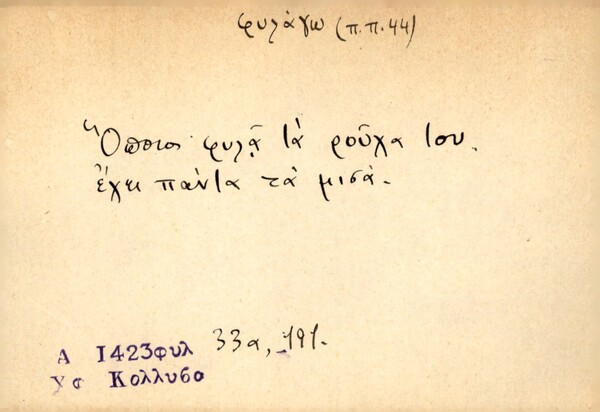 φυλάγω (π.π. 44)
Ὅποιος φυλᾷ τὰ ροῦχα του.
ἔχει πάντα τὰ μισά.
Α 1423φυλ 33α, 191.
Υσ Κολλυβο